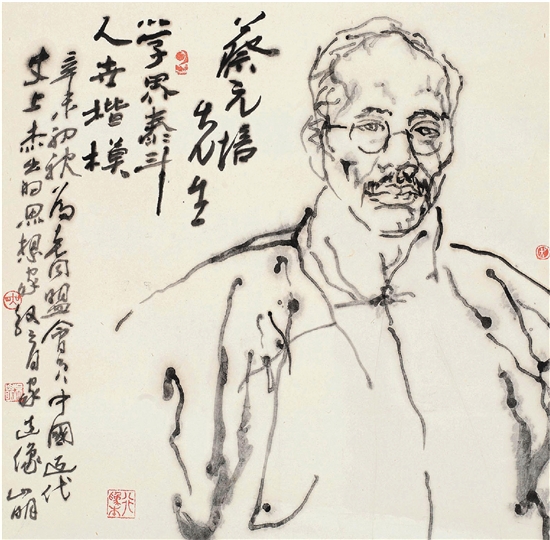 蔡元培
先生
學界泰斗
人世楷模
辛卯初秋為老同盟會員中國近代
史上杰出的思想家教育家造像 山明